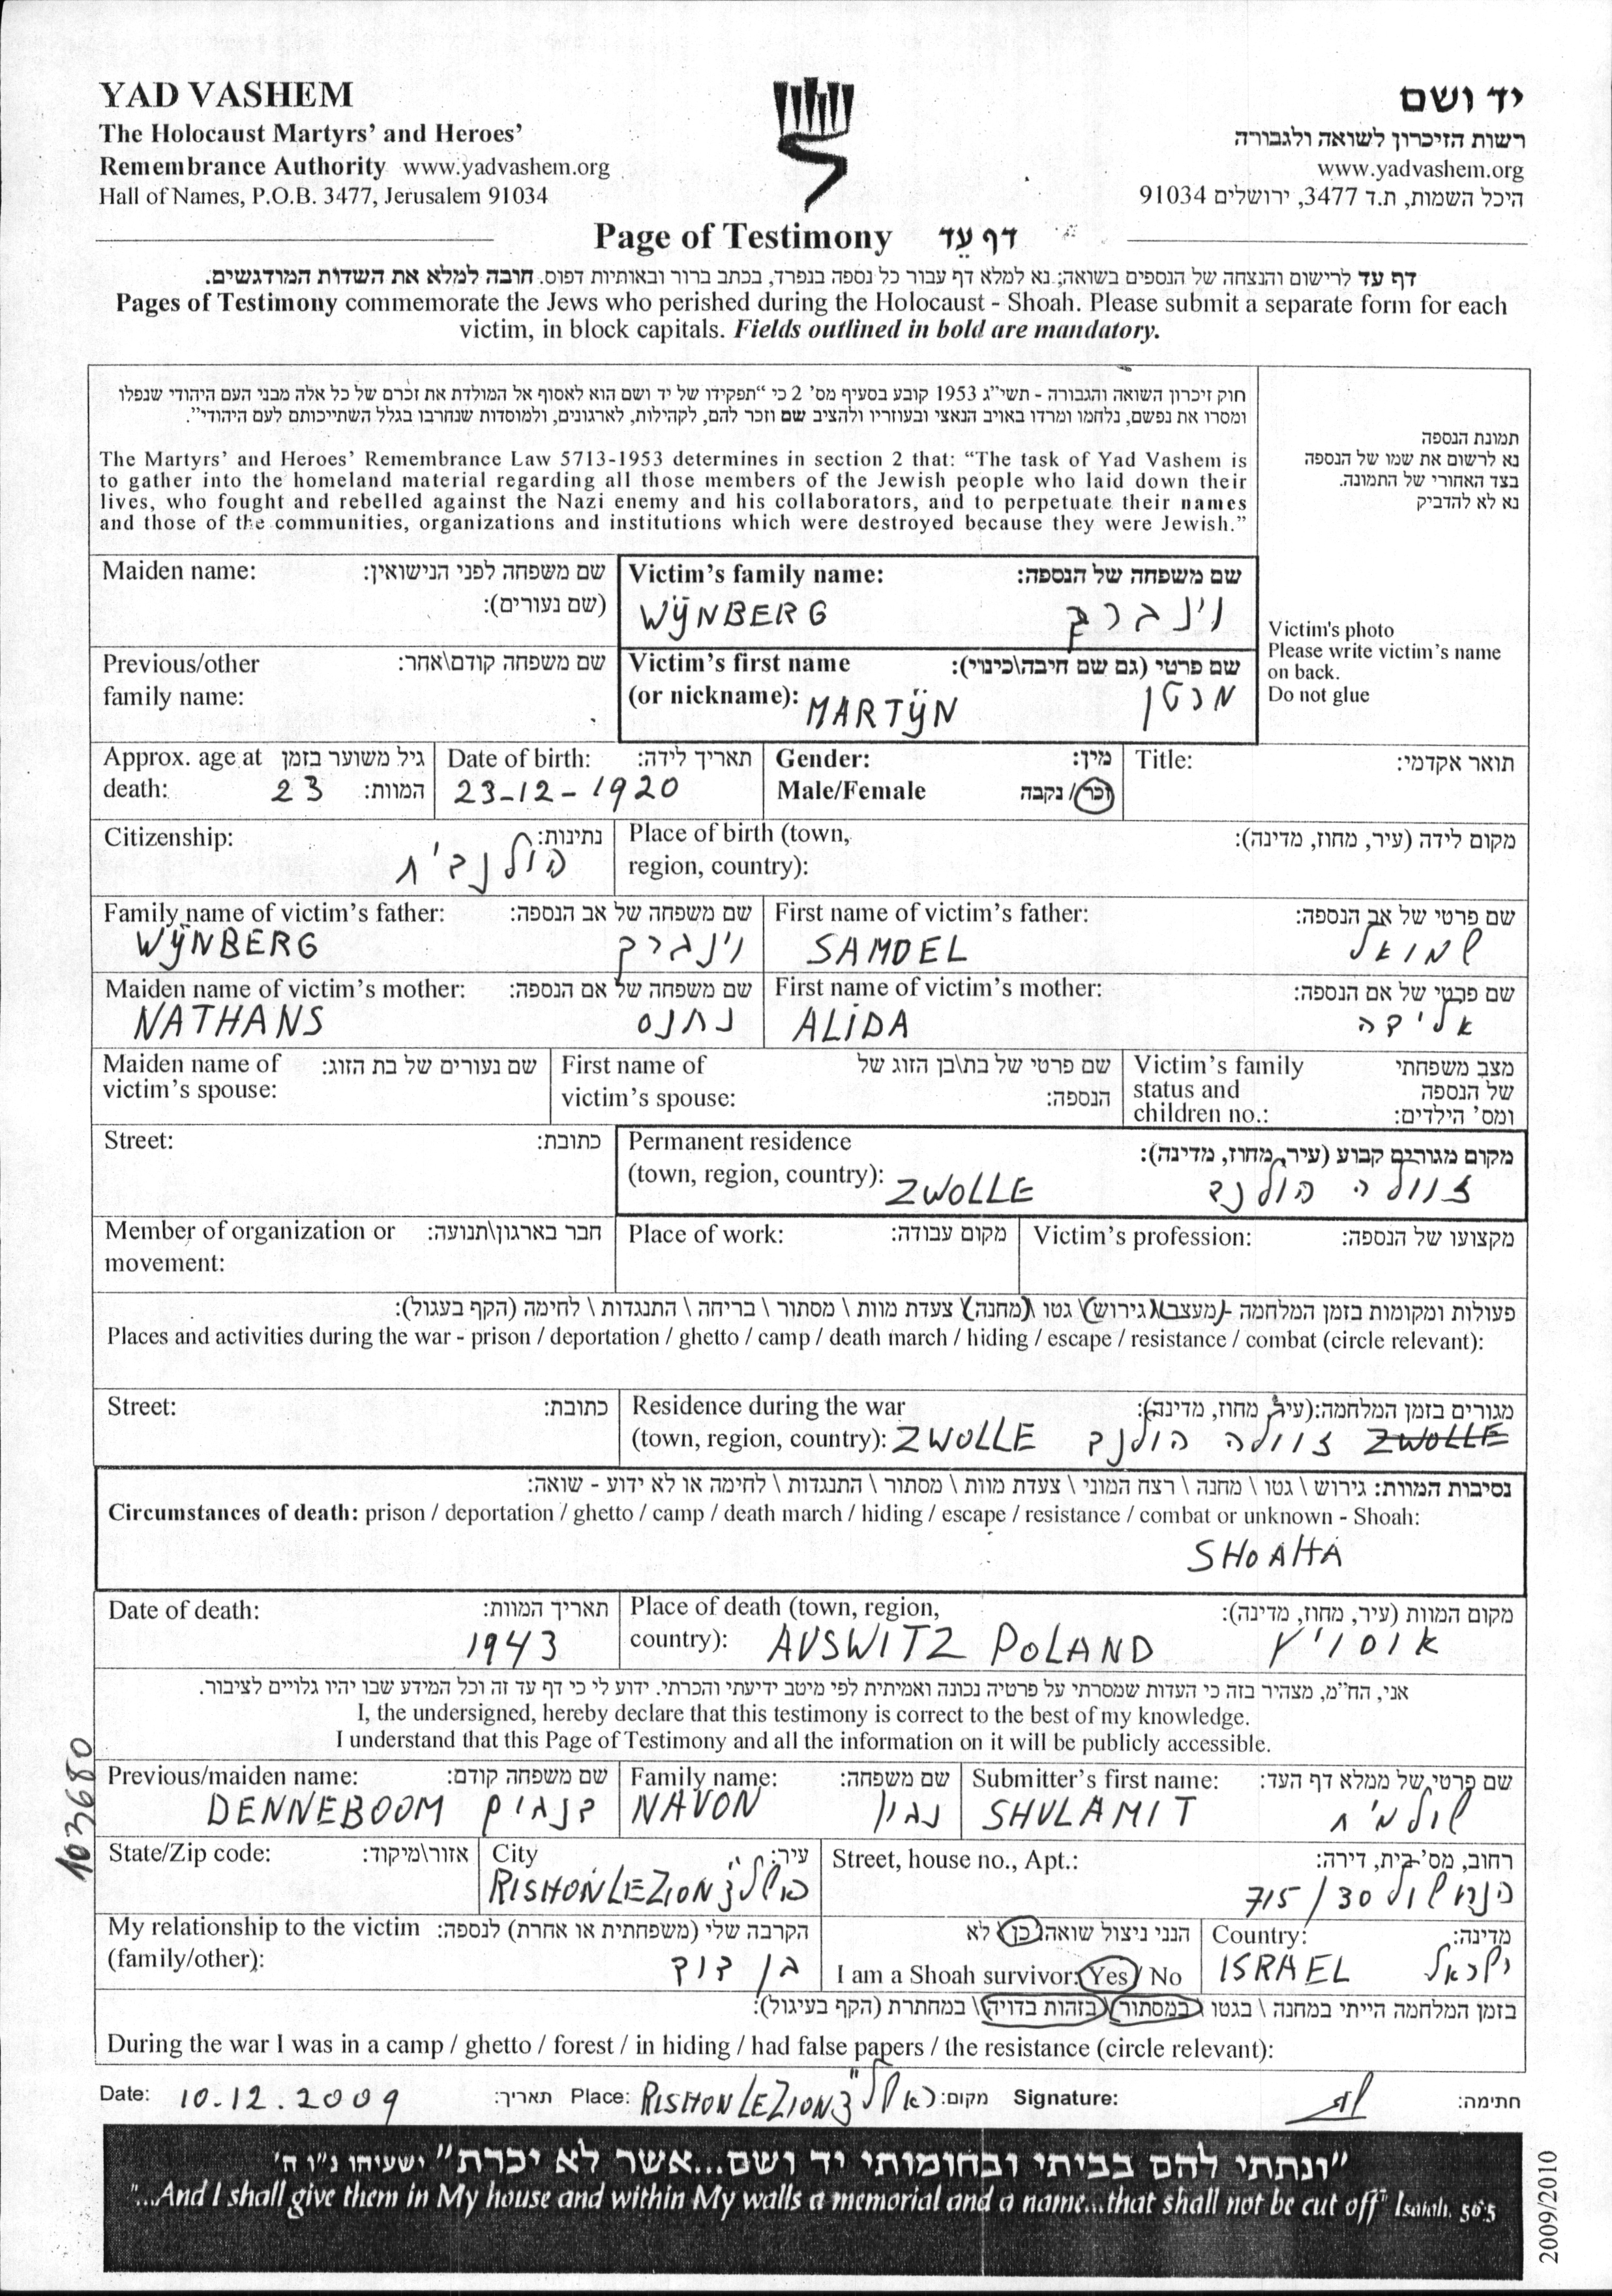 YAD VASHEM
The Holocaust Martyrs' and Heroes'
Remembrance Authority www.yadvashem.org
Hall of Names, P.O.B. 3477, Jerusalem 91034
יד ושם
רשות הזיכרון לשואה ולגבורה
www.yadvashem.org
היכל השמות, ת.ד 3477, ירושלים 91034
Page of Testimony דף עֵד
דף עד לרישום והנצחה של הנספים בשואה; נא למלא דף עבור כל נספה בנפרד, בכתב ברור ובאותיות דפוס. חובה למלא את השדות המודגשים.
Pages of Testimony commemorate the Jews who perished during the Holocaust - Shoah. Please submit a separate form for each
victim, in block capitals. Fields outlined in bold are mandatory.
חוק זיכרון השואה והגבורה - תשי"ג 1953 קובע בסעיף מס' 2 כי "תפקידו של יד ושם הוא לאסוף אל המולדת את זכרם של כל אלה מבני העם היהודי שנפלו
ומסרו את נפשם, נלחמו ומרדו באויב הנאצי ובעוזריו ולהציב שם וזכר להם, לקהילות, לארגונים, ולמוסדות שנחרבו בגלל השתייכותם לעם היהודי".
The Martyrs' and Heroes' Remembrance Law 5713-1953 determines in section 2 that: "The task of Yad Vashem is
to gather into the homeland material regarding all those members of the Jewish people who laid down their
lives, who fought and rebelled against the Nazi enemy and his collaborators, and to perpetuate their names
and those of the communities, organizations and institutions which were destroyed because they were Jewish."
תמונת הנספה
נא לרשום את שמו של הנספה
בצד האחורי של התמונה.
נא לא להדביק
Victim's photo
Please write victim's name
on back.
Do not glue
Maiden name: שם משפחה לפני הנישואין:
(שם נעורים):
Victim's family name: שם משפחה של הנספה:
WŸNBERG וינברג
Previous/other שם משפחה קודם\אחר:
family name:
Victim's first name שם פרטי (גם שם חיבה\כינוי):
(or nickname): MARTŸN מרטן
Approx. age at גיל משוער בזמן
death: 23 המוות:
Date of birth: תאריך לידה:
23-12-1920
Gender: מין:
Male/Female זכר/ נקבה
Title: תואר אקדמי:
Citizenship: נתינות:
הולנדית
Place of birth (town, מקום לידה (עיר, מחוז, מדינה):
region, country):
Family name of victim's father: שם משפחה של אב הנספה:
WŸNBERG וינברג
First name of victim's father: שם פרטי של אב הנספה:
SAMOEL שמואל
Maiden name of victim's mother: שם משפחה של אם הנספה:
NATHANS נתנס
First name of victim's mother: שם פרטי של אם הנספה:
ALIDA אלידה
Maiden name of שם נעורים של בת הזוג:
victim's spouse:
First name of שם פרטי של בת\בן הזוג של
victim's spouse: הנספה:
Victim's family מצב משפחתי
status and של הנספה
children no.: ומס' הילדים:
Street: כתובת:
Permanent residence מקום מגורים קבוע (עיר, מחוז, מדינה):
(town, region, country): ZWOLLE זוולה הולנד
Member of organization or חבר בארגון\תנועה:
movement:
Place of work: מקום עבודה:
Victim's profession: מקצועו של הנספה:
פעולות ומקומות בזמן המלחמה - מעצר \ גירוש \ גטו \ מחנה \ צעדת מוות \ מסתור \ בריחה \ התנגדות \ לחימה (הקף בעגול):
Places and activities during the war - prison / deportation / ghetto / camp / death march / hiding / escape / resistance / combat (circle relevant):
Street: כתובת:
Residence during the war מגורים בזמן המלחמה:(עיר, מחוז, מדינה):
(town, region, country): ZWOLLE זוולה הולנד ZWOLLE
נסיבות המוות: גירוש \ גטו \ מחנה \ רצח המוני \ צעדת מוות \ מסתור \ התנגדות \ לחימה או לא ידוע - שואה:
Circumstances of death: prison / deportation / ghetto / camp / death march / hiding / escape / resistance / combat or unknown - Shoah:
SHOAHA
Date of death: תאריך המוות:
1943
Place of death (town, region, מקום המוות (עיר, מחוז, מדינה):
country): AUSWITZ POLAND אוסויץ
אני, הח"מ, מצהיר בזה כי העדות שמסרתי על פרטיה נכונה ואמיתית לפי מיטב ידיעתי והכרתי. ידוע לי כי דף עד זה וכל המידע שבו יהיו גלויים לציבור.
I, the undersigned, hereby declare that this testimony is correct to the best of my knowledge.
I understand that this Page of Testimony and all the information on it will be publicly accessible.
103680
Previous/maiden name: שם משפחה קודם:
DENNEBOOM דנבום
Family name: שם משפחה:
NAVON נבון
Submitter's first name: שם פרטי של ממלא דף העד:
SHULAMIT שולמית
State/Zip code: אזור\מיקוד:
City עיר:
RISHON LEZION ראשל"צ
Street, house no., Apt.: רחוב, מס' בית, דירה:
הנחשול 30/715
My relationship to the victim הקרבה שלי (משפחתית או אחרת) לנספה:
(family/other): בן דוד
הנני ניצול שואה: כן \ לא
I am a Shoah survivor: Yes / No
Country: מדינה:
ISRAEL ישראל
בזמן המלחמה הייתי במחנה \ בגטו \ במסתור \ בזהות בדויה \ במחתרת (הקף בעיגול):
During the war I was in a camp / ghetto / forest / in hiding / had false papers / the resistance (circle relevant):
Date: 10.12.2009 תאריך: Place: RISHON LEZION ראשל"צ מקום: Signature: חתימה:
"ונתתי להם בביתי ובחומותי יד ושם...אשר לא יכרת" ישעיהו נ"ו ה'
"...And I shall give them in My house and within My walls a memorial and a name...that shall not be cut off" Isaiah. 56:5
2009/2010